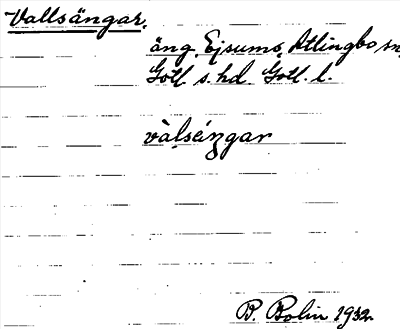 Vallsängar.
äng. Ejsums, Atlingbo sn,
Gotl s. hd. Gotl. l.
vàlséngar
B. Bolin 1932